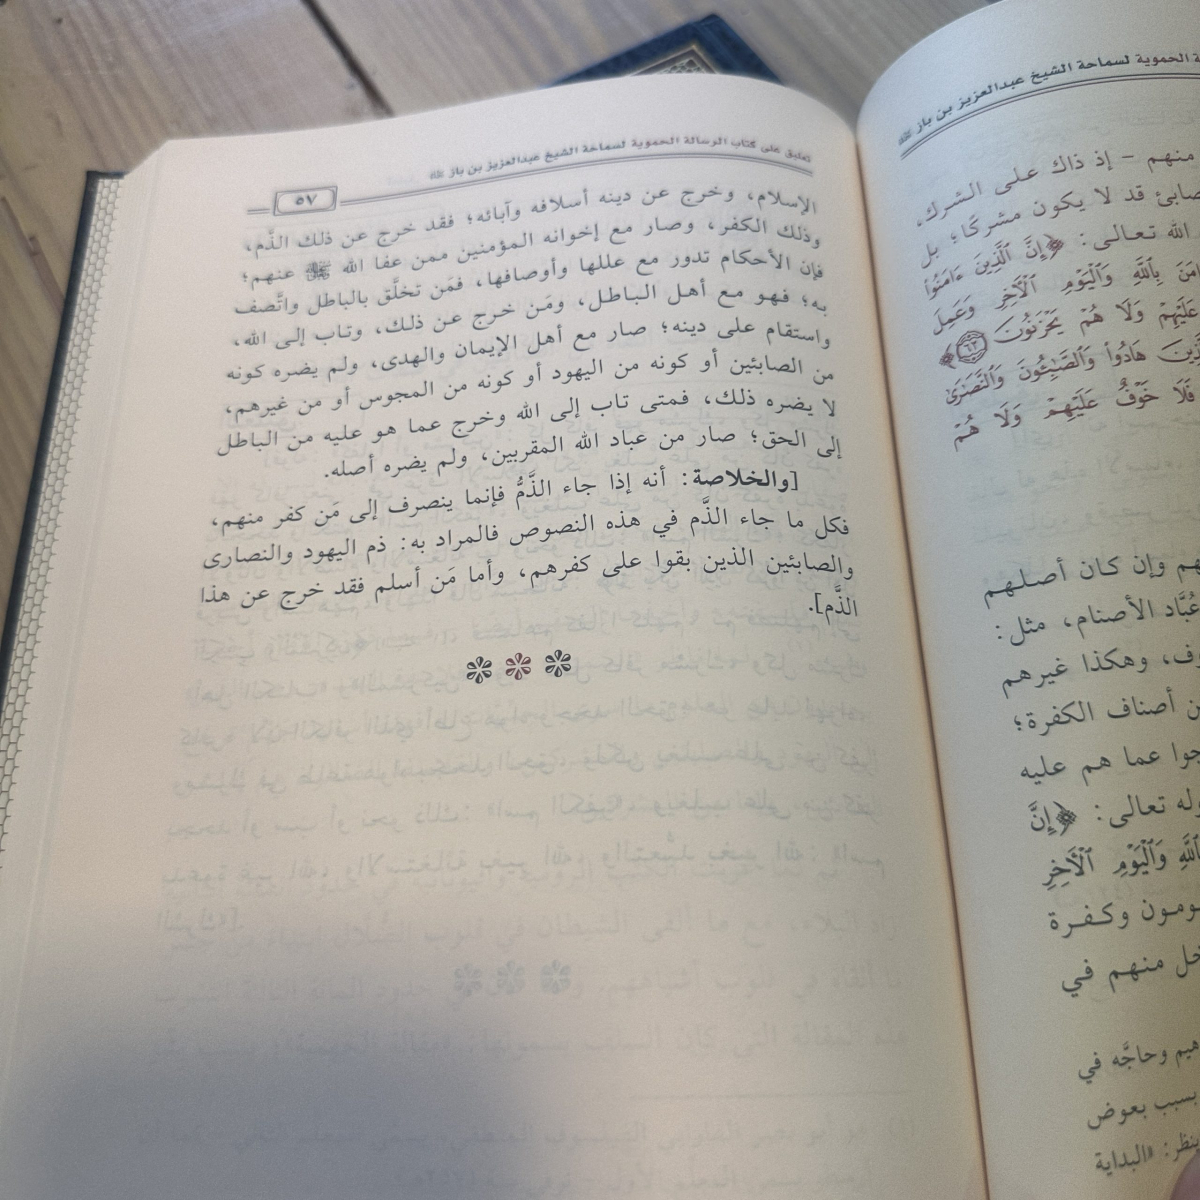 تعليق على كتاب الرسالة الحموية لسماحة الشيخ عبدالعزيز بن باز
٥٧
الإسلام، وخرج عن دينه أسلافه وآبائه؛ فقد خرج عن ذلك الذَّم،
وذلك الكفر، وصار مع إخوانه المؤمنين ممن عفا الله ﷻ عنهم؛
فإن الأحكام تدور مع عللها وأوصافها، فمَن تخلَّق بالباطل واتَّصف
به؛ فهو مع أهل الباطل، ومَن خرج عن ذلك، وتاب إلى الله،
واستقام على دينه؛ صار مع أهل الإيمان والهدى، ولم يضره كونه
من الصابئين أو كونه من اليهود أو كونه من المجوس أو من غيرهم،
لا يضره ذلك، فمتى تاب إلى الله وخرج عما هو عليه من الباطل
إلى الحق؛ صار من عباد الله المقربين، ولم يضره أصله.
[والخلاصة: أنه إذا جاء الذَّمُّ فإنما ينصرف إلى مَن كفر منهم،
فكل ما جاء الذَّم في هذه النصوص فالمراد به: ذم اليهود والنصارى
والصابئين الذين بقوا على كفرهم، وأما مَن أسلم فقد خرج عن هذا
الذَّم].
الحموية لسماحة الشيخ عبدالعزيز بن باز
منهم - إذ ذاك على الشرك،
قد لا يكون مشركًا؛ بل
الله تعالى: ﴿إِنَّ ٱلَّذِينَ ءَامَنُوا۟
بِٱللَّهِ وَٱلْيَوْمِ ٱلْأَخِرِ وَعَمِلَ
عَلَيْهِمْ وَلَا هُمْ يَحْزَنُونَ ٦٢﴾
هَادُوا۟ وَٱلصَّـٰبِـُٔونَ وَٱلنَّصَـٰرَىٰ
فَلَا خَوْفٌ عَلَيْهِمْ وَلَا هُمْ
وإن كان أصلهم
عُبَّاد الأصنام، مثل:
وهكذا غيرهم
أصناف الكفرة؛
عما هم عليه
تعالى: ﴿إِنَّ
وَٱلْيَوْمِ ٱلْأَخِرِ
وكفرة
منهم في
وحاجَّه في
بسبب بعوض
ينظر: «البداية